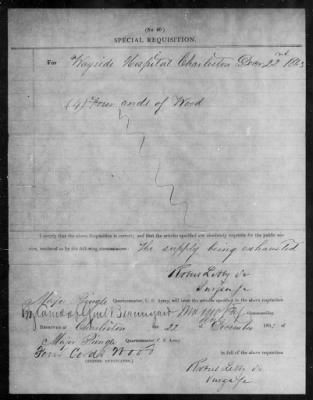 (No 40)
SPECIAL REQUISITION.
For Wayside Hospital Charleston Decr 22nd 1863
(4) Four cords of Wood
I certify that the above Requisition is correct; and that the articles specified are absolutely requisite for the public ser-
vice, rendered so by the following circumstances: The supply being exhausted
Surgeon
Major Pringle Quartermaster, C. S. Army, will issue the articles specified in the above requisition
By Command of Genl Beauregard
RECEIVED at Charleston the 22 of December 1863 of
Major Pringle Quartermaster, C. S. Army
Four Cords Wood in full of the above requisition
(SIGNED DUPLICATES.)
Surgeon